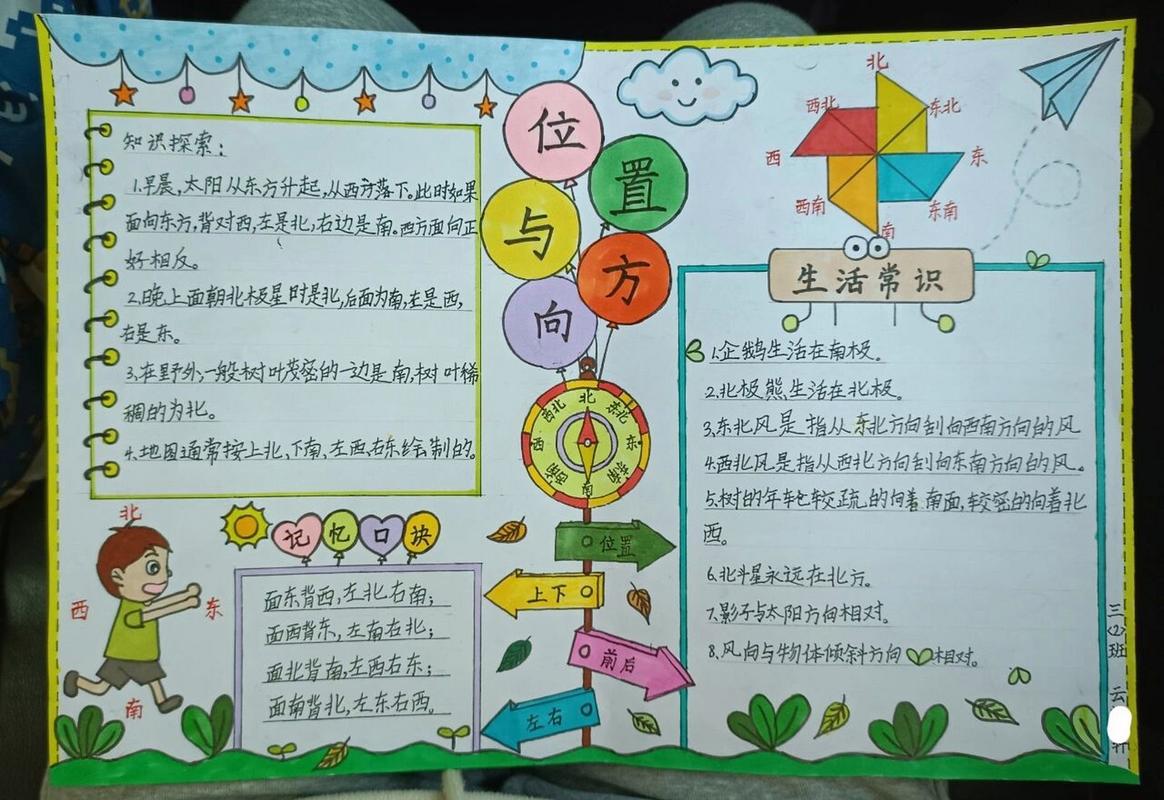 位
置
与
方
向
知识探索：
1.早晨，太阳从东方升起，从西方落下，此时如果
面向东方，背对西，左是北，右边是南。西方面向正
好相反。
2.晚上面朝北极星时是北，后面为南，左是西，
右是东。
3.在野外，一般树叶茂密的一边是南，树叶稀
稠的为北。
4.地图通常按上北，下南，左西，右东绘制的。
北
西
东
南
记忆口诀
面东背西，左北右南；
面西背东，左南右北；
面北背南，左西右东；
面南背北，左东右西。
北
东北
东
南
西
西北
位置
上下
前后
左右
北
西北
东北
西
东
西南
东南
南
生活常识
1.企鹅生活在南极。
2.北极熊生活在北极。
3.东北风是指从东北方向刮向西南方向的风
4.西北风是指从西北方向刮向东南方向的风。
5.树的年轮较疏的向着南面，较密的向着北
西。
6.北斗星永远在北方。
7.影子与太阳方向相对。
8.风向与物体倾斜方向相对。
三〈2〉班
云